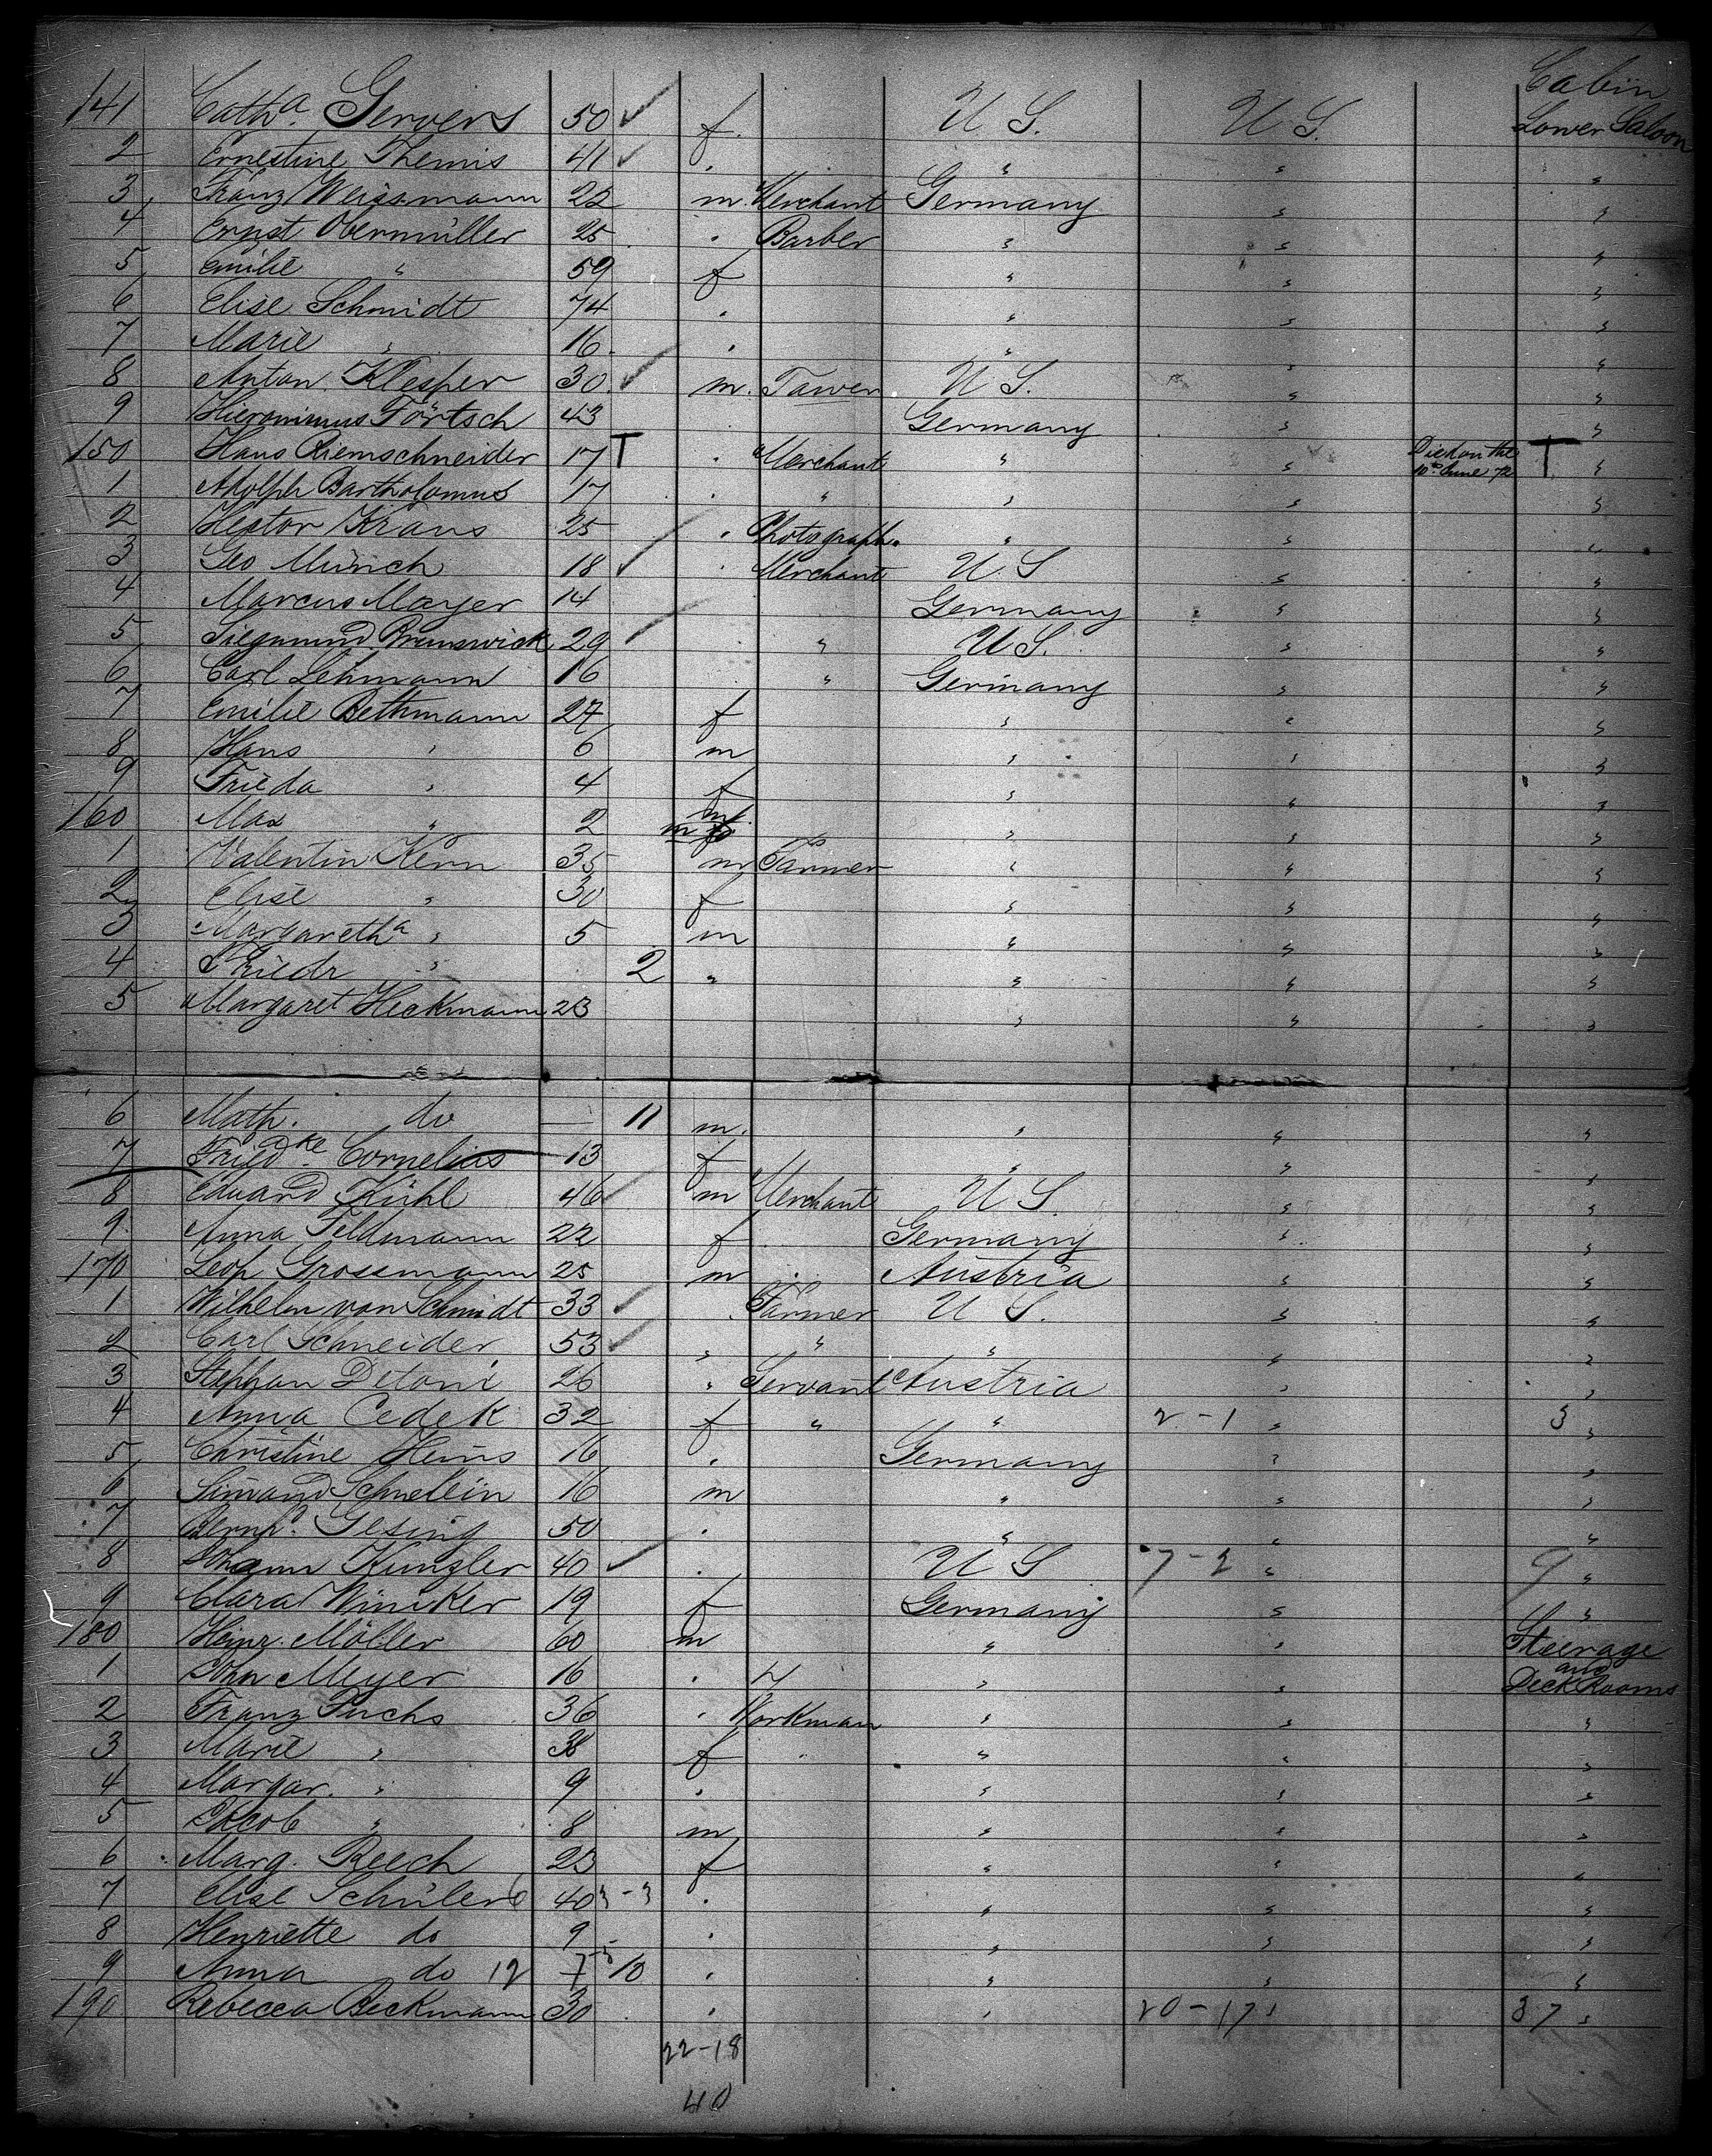 Cabin
141 Cath^a. Servers 50 f. U S. U S. Lower Saloon
2 Ernestine Themis 41 " " " "
3 Franz Weissmann 22 m. Merchant Germany " "
4 Ernst Obermüller 25 " Barber " " "
5 Emilie " 59 f " " "
6 Elise Schmidt 74 " " " "
7 Marie " 16 " " " "
8 Anton Klesper 30 m. U S. " "
9 Hieronimus Förtsch 43 Germany " "
150 Hans Riemschneider 17 T " Merchant " " Died on the 10th June 72 T "
1 Adolph Bartholomus 17 " " " " "
2 Hector Kraus 25 " Photograph. " " "
3 Geo Münich 18 " Merchant U. S " "
4 Marcus Mayer 14 Germany " "
5 Siegmund Brunswick 29 " U S. " "
6 Carl Lehmann 16 " Germany " "
7 Emilie Bethmann 27 f " " "
8 Hans " 6 m " " "
9 Frieda " 4 f " " "
160 Max " 2 m " " "
1 Valentin Kern 35 m Farmer " " "
2 Elise " 30 f " " "
3 Margareth^a " 5 m " " "
4 Friedr " 2 " " " "
5 Margaret Heckmann 23 " " "
6 Math. do — 11 m. " " "
7 Fried^ke. Cornelias 13 f " " "
8 Eduard Kühl 46 m Merchant U S. " "
9 Anna Feldmann 22 f Germany " "
170 Leop Grossmann 25 m Austria " "
1 Wilhelm von Schmidt 33 " Farmer U S. " "
2 Carl Schneider 53 " " " " "
3 Stephan Detoni 26 " Servant Austria " "
4 Anna Cedek 32 f " " 2-1 " 3 "
5 Christine Heins 16 " Germany " "
6 Schnelein 16 m " " "
7 Bernh^d. Gesing 50 " " " "
8 Johann Kunzler 40 " U S 7-2 " 9 "
9 Clara Winiker 19 f Germany " "
180 Heinr. Möller 60 m " " Steerage
1 John Meyer 16 " " " and Deck Rooms
2 Franz Fuchs 36 " Workman " " "
3 Marie " 38 f " " "
4 Margar. " 9 " " " "
5 Jacob " 8 m " " "
6 Marg. Reech 23 f " " "
7 Elise Schüler 40 3-3 " " " "
8 Henriette do 9 " " " "
9 Anna do 12 7 10 " " " "
190 Rebecca Beckmann 30 " " 20-17 " 37 "
22-18
40